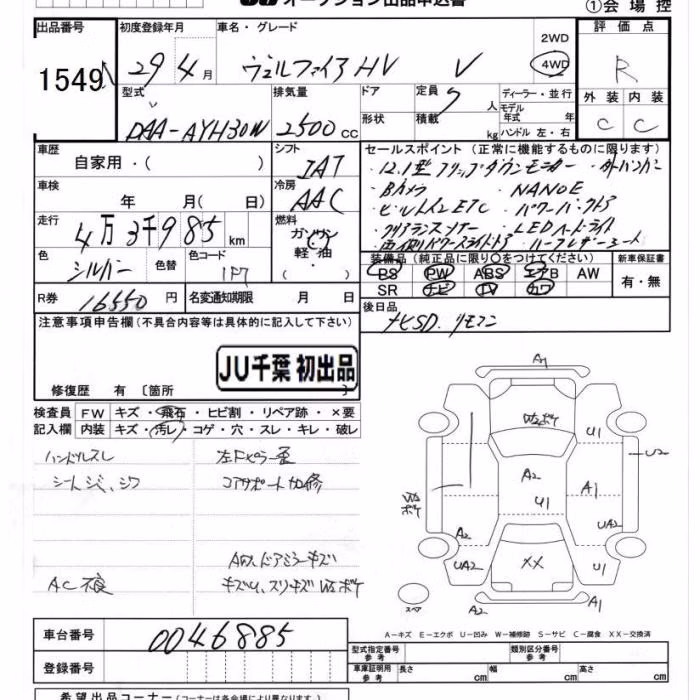 オークション出品申込書
①会場控
出品番号
初度登録年月
車名・グレード
評価点
1549
29年4月
ヴェルファイア HV V
2WD
4WD
R
型式
排気量
ドア
定員
ディーラー・並行
外装 内装
DAA-AYH30W
2500cc
7人
モデル年式 年
C C
形状
積載
kg
ハンドル 左・右
車歴
シフト
セールスポイント(正常に機能するものに限ります)
自家用・( )
IAT
・12.1型フリップダウンモニター
車検
冷房
・Bカメラ ・NANOE
年 月( 日)
AAC
・ビルトインETC ・パワーバックドア
走行
燃料
・クリアランスソナー ・LEDヘッドライト
4万3千985km
ガソリン
軽油・
・両側パワースライドドア ・ハーフレザーシート
( )
色
色替
色コード
装備品(純正品に限り○をつけてください)
新車保証書
シルバー
1F7
PS PW ABS エアB AW
有・無
R券
16550円
名変通知期限 月 日
SR ナビ TV カワ
後日品
ナビSD、リモコン
注意事項申告欄(不具合内容等は具体的に記入して下さい)
JU千葉 初出品
修復歴 有〔箇所 〕
検査員
記入欄
FW キズ・飛石・ヒビ割・リペア跡・×要
内装 キズ・汚レ・コゲ・穴・スレ・キレ・破レ
ハンドルスレ
左Fピラー歪
シートシミ、シワ
コアサポート加修
ドアミラーキズ
AC不良
A1
W2ボケ
U1
U2
A2
A1
W2
ボケ
U1
A2
UA2
UA2
XX
U1
スペア
A2
A1
車台番号
0046885
A-キズ E-エクボ U-凹み W-補修跡 S-サビ C-腐食 XX-交換済
型式指定番号
参考
類別区分番号
参考
登録番号
車庫証明用
参考
長さ cm
幅 cm
高さ cm
希望出品コーナー(コーナーは各会場により異なります)